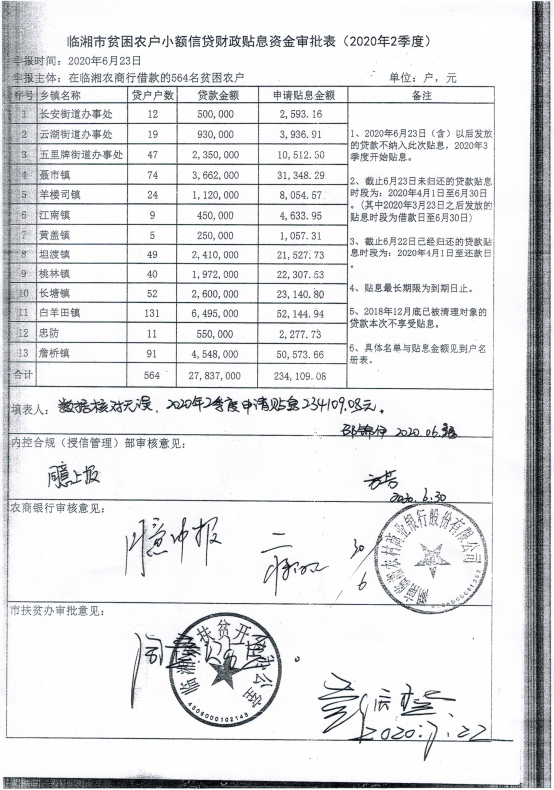 临湘市贫困农户小额信贷财政贴息资金审批表（2020年2季度）
申报时间：2020年6月23日
申报主体：在临湘农商行借款的564名贫困农户 单位：户，元
序号 乡镇名称 贷户户数 贷款金额 申请贴息金额 备注
1 长安街道办事处 12 500,000 2,593.16
2 云湖街道办事处 19 930,000 3,936.91
3 五里牌街道办事处 47 2,350,000 10,512.50
4 聂市镇 74 3,662,000 31,348.29
5 羊楼司镇 24 1,120,000 8,054.57
6 江南镇 9 450,000 4,633.95
7 黄盖镇 5 250,000 1,057.31
8 坦渡镇 49 2,410,000 21,527.73
9 桃林镇 40 1,972,000 22,307.53
10 长塘镇 52 2,600,000 23,140.80
11 白羊田镇 131 6,495,000 52,144.94
12 忠防 11 550,000 2,277.73
13 詹桥镇 91 4,548,000 50,573.66
合计 564 27,837,000 234,109.08
1、2020年6月23日（含）以后发放
的贷款不纳入此次贴息，2020年3
季度开始贴息。
2、截止6月23日未归还的贷款贴息
时段为：2020年4月1日至6月30日
。(其中2020年3月23日之后发放的
贴息时段为借款日至6月30日)
3、截止6月22日已经归还的贷款贴
息时段为：2020年4月1日至还款日
。
4、贴息最长期限为到期日止。
5、2018年12月底已被清理对象的
贷款本次不享受贴息。
6、具体名单与贴息金额见到户名
册表。
填表人：数据核对无误，2020年2季度申请贴息234109.08元。
2020.06.
内控合规（授信管理）部审核意见：
同意上报
2020.6.30
农商银行审核意见：
同意申报
30/6
湖南临湘农村商业银行股份有限公司
市扶贫办审批意见：
临湘市扶贫开发办公室
4306000102148
2020.7.22